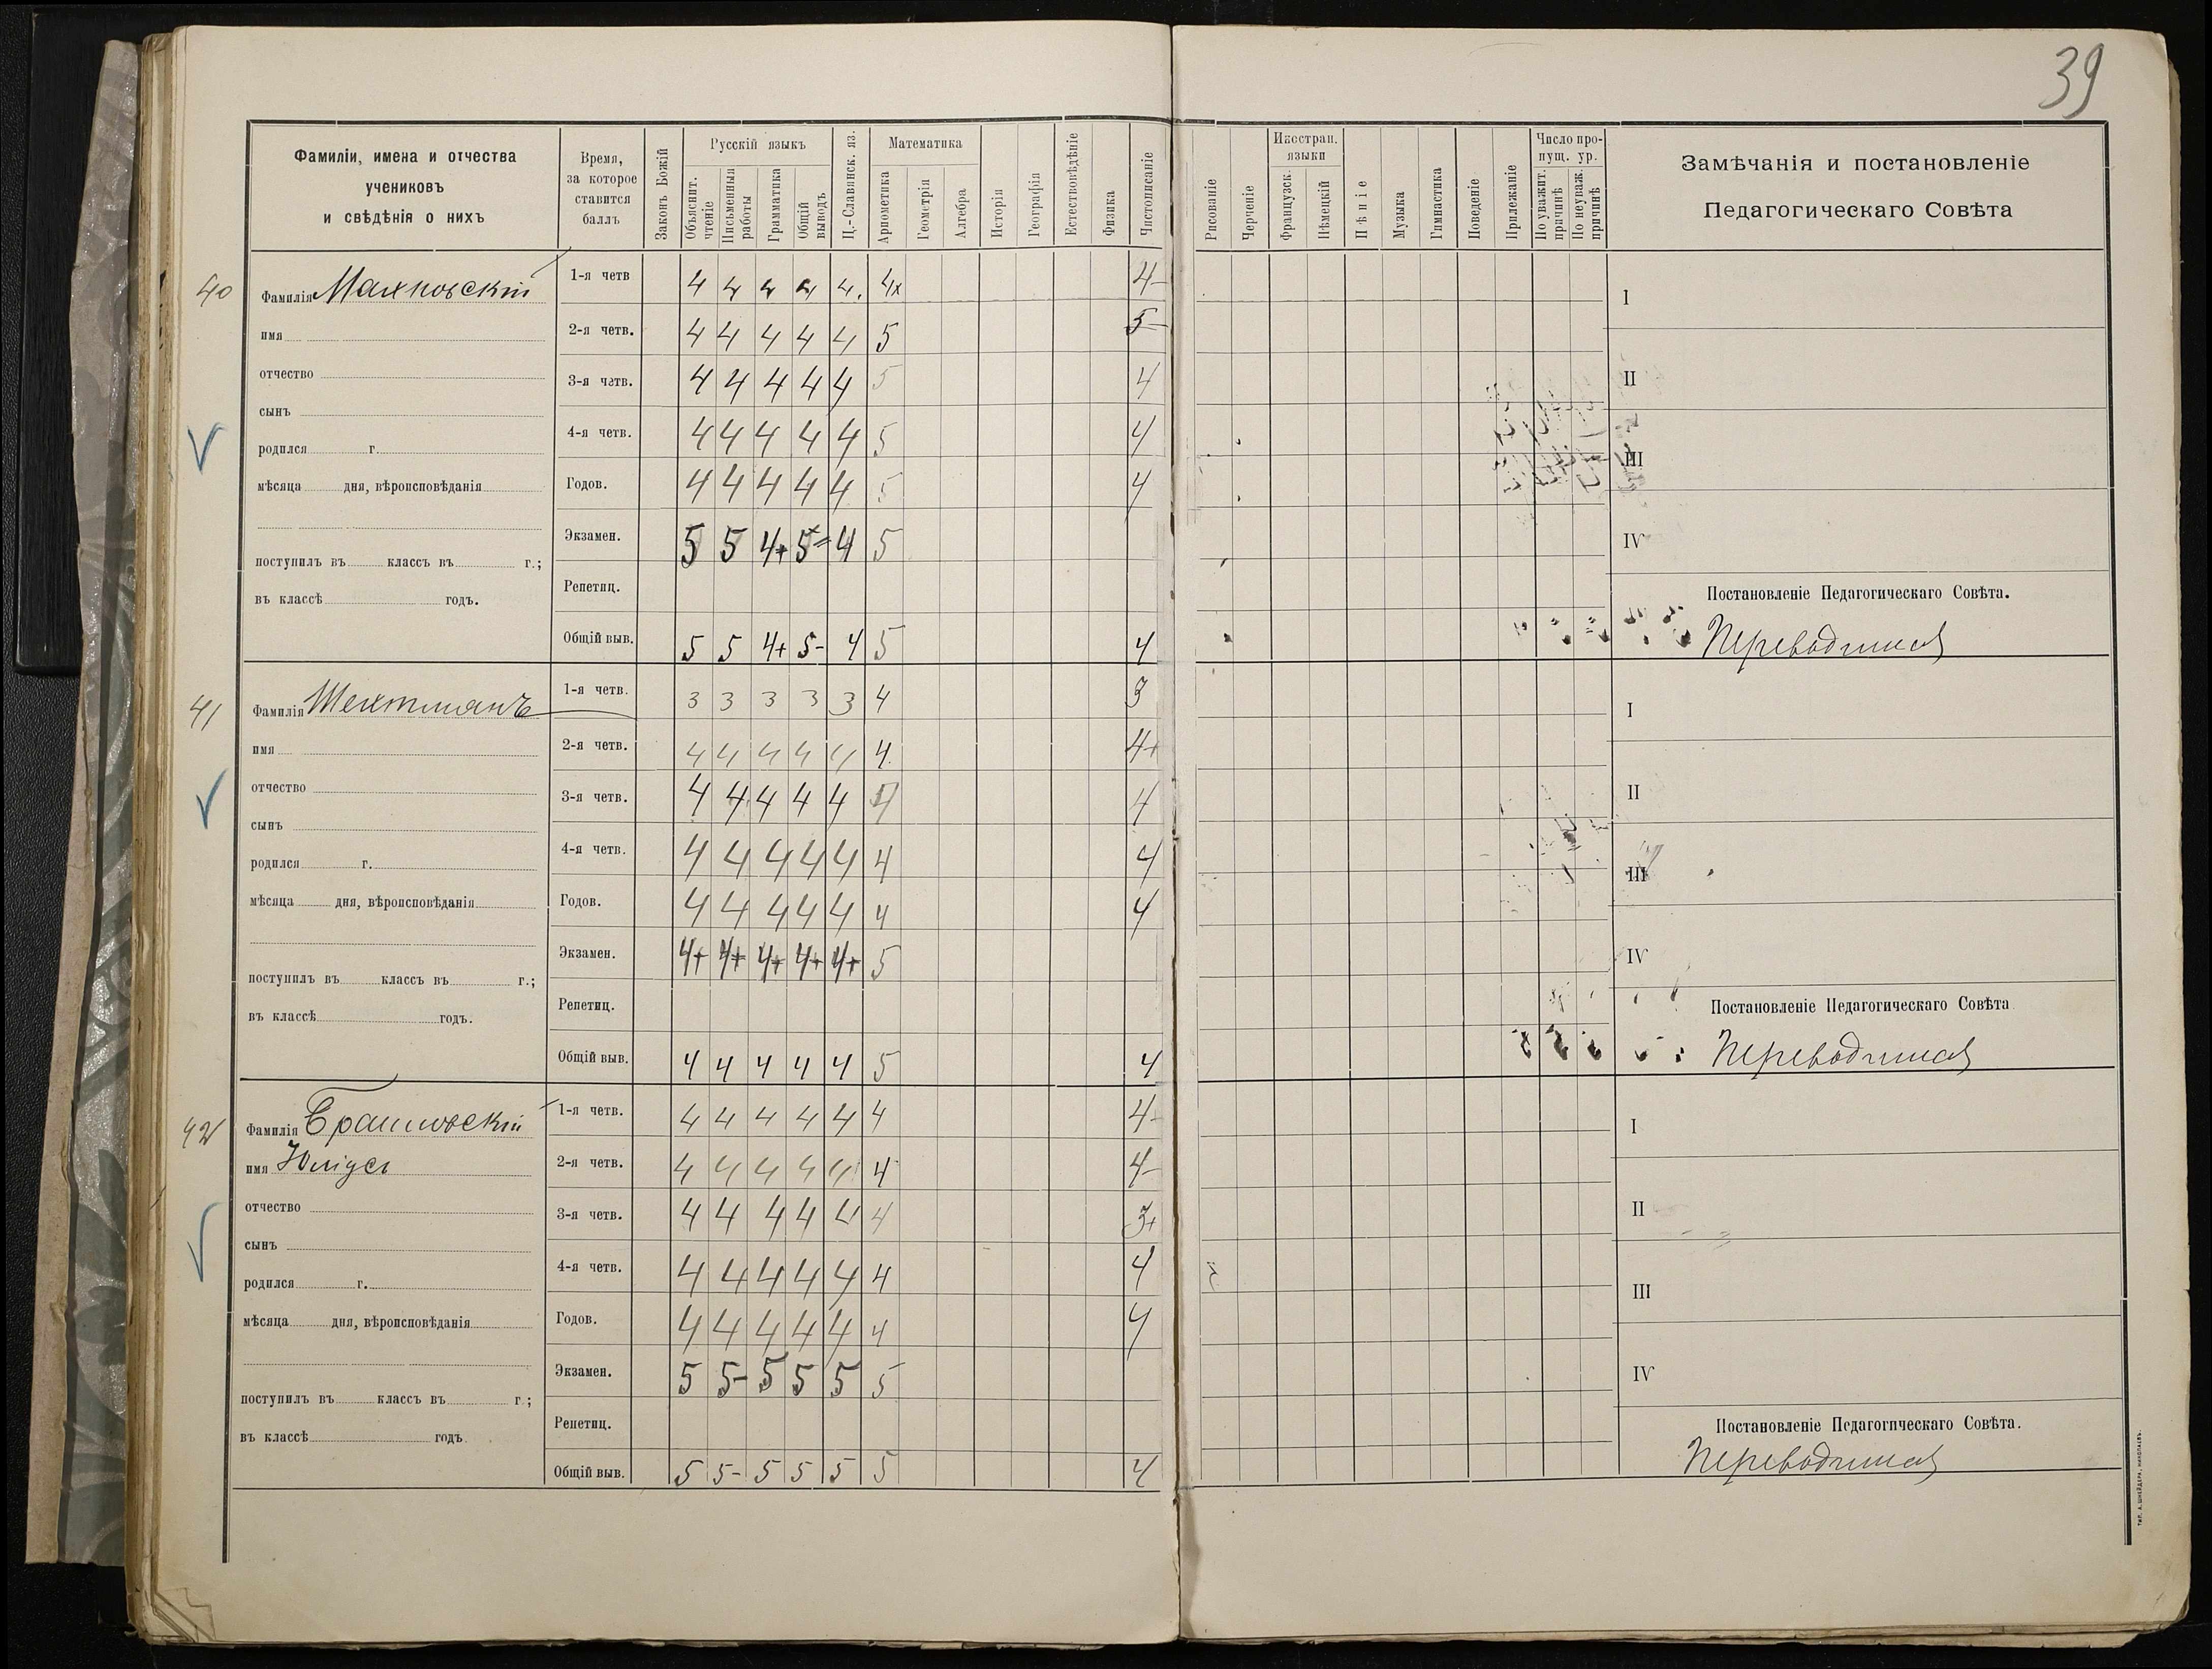 39
Фамиліи, имена и отчества
учениковъ
и свѣдѣнія о нихъ
Время,
за которое
ставится
баллъ
Законъ Божій
Русскій языкъ
Объяснит. чтеніе
Письменныя работы
Грамматика
Общій выводъ
Ц.-Славянск. яз.
Математика
Ариѳметика
Геометрія
Алгебра
Исторія
Географія
Естествовѣдѣніе
Физика
Чистописаніе
Рисованіе
Черченіе
Иностран. языки
Французск.
Нѣмецкій
Пѣніе
Музыка
Гимнастика
Поведеніе
Прилежаніе
Число пропущ. ур.
По уважит. причинѣ
По неуваж. причинѣ
Замѣчанія и постановленіе
Педагогическаго Совѣта
40
Фамилія Махновскій
имя
отчество
сынъ
родился г.
мѣсяца дня, вѣроисповѣданія
поступилъ въ классъ въ г.;
въ классѣ годъ.
1-я четв 4 4 4 4 4. 4x 4-
2-я четв. 4 4 4 4 4 5 5-
3-я четв. 4 4 4 4 4 5 4
4-я четв. 4 4 4 4 4 5 4
Годов. 4 4 4 4 4 5 4
Экзамен. 5 5 4+ 5= 4 5
Репетиц.
Общій выв. 5 5 4+ 5- 4 5 4
I
II
III
IV
Постановленіе Педагогическаго Совѣта.
Переводится
41
Фамилія Шехтманъ
имя
отчество
сынъ
родился г.
мѣсяца дня, вѣроисповѣданія
поступилъ въ классъ въ г.;
въ классѣ годъ.
1-я четв. 3 3 3 3 3 4 3
2-я четв. 4 4 4 4 4 4. 4+
3-я четв. 4 4 4 4 4 4 4
4-я четв. 4 4 4 4 4 4 4
Годов. 4 4 4 4 4 4 4
Экзамен. 4+ 4+ 4+ 4+ 4+ 5
Репетиц.
Общій выв. 4 4 4 4 4 5 4
I
II
III
IV
Постановленіе Педагогическаго Совѣта
Переводится
42
Фамилія Браиловскій
имя
отчество
сынъ
родился г.
мѣсяца дня, вѣроисповѣданія
поступилъ въ классъ въ г.;
въ классѣ годъ.
1-я четв. 4 4 4 4 4 4 4-
2-я четв. 4 4 4 4 4 4 4-
3-я четв. 4 4 4 4 4 4 3+
4-я четв. 4 4 4 4 4 4 4
Годов. 4 4 4 4 4 4 4
Экзамен. 5 5- 5 5 5 5
Репетиц.
Общій выв. 5 5- 5 5 5 5 4
I
II
III
IV
Постановленіе Педагогическаго Совѣта.
Переводится
Тип. А. Шнейдера, Николаевъ.